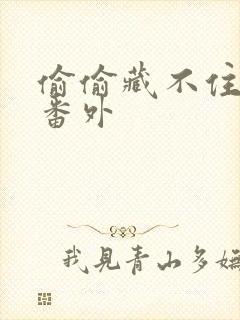 偷偷藏不住
番外
我見青山多嫵